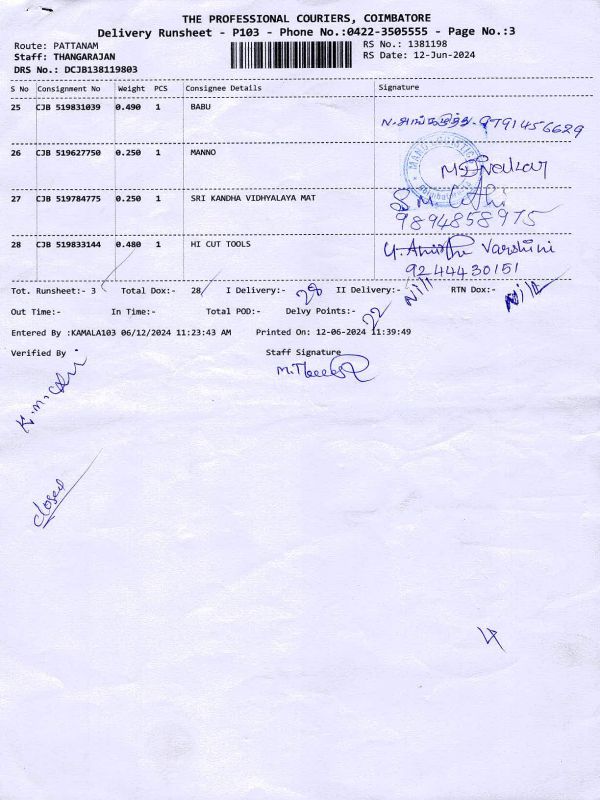 THE PROFESSIONAL COURIERS, COIMBATORE
Delivery Runsheet - P103 - Phone No.:0422-3505555 - Page No.:3
Route: PATTANAM RS No.: 1381198
Staff: THANGARAJAN RS Date: 12-Jun-2024
DRS No.: DCJB138119803
S No Consignment No Weight PCS Consignee Details Signature
25 CJB 519831039 0.490 1 BABU
9791456629
26 CJB 519627750 0.250 1 MANNO
27 CJB 519784775 0.250 1 SRI KANDHA VIDHYALAYA MAT
9894858975
28 CJB 519833144 0.480 1 HI CUT TOOLS Varshini
9244430151
Tot. Runsheet:- 3 Total Dox:- 28/ I Delivery:- 28 II Delivery:- Nil RTN Dox:- Nil
Out Time:- In Time:- Total POD:- Delvy Points:- 22
Entered By :KAMALA103 06/12/2024 11:23:43 AM Printed On: 12-06-2024 11:39:49
Verified By Staff Signature
closed